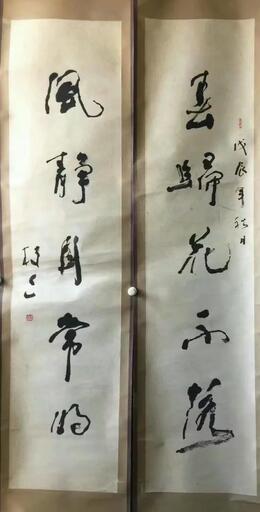 春歸花不落
戊辰年秋月
風靜月常明